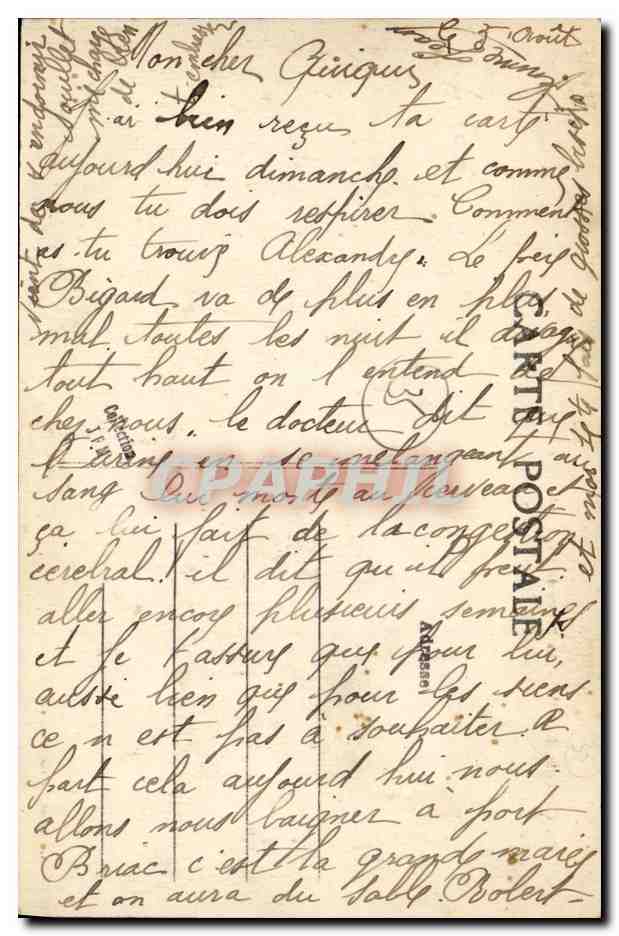 le 3 Août
Mon cher
J'ai bien reçu ta carte
aujourd hui dimanche. et comme
nous tu dois respirer. Comment
as tu trouvé Alexandre. Le père
Bigard va de plus en plus
mal. toutes les nuit il
tout haut on l entend de
chez nous. le docteur dit que
l urine en se melangeant au
sang lui monte au cerveau et
ça lui fait de la congestion
cérébral. il dit qu il peut
aller encore plusieurs semaines
et je t assure que pour lui,
aussi bien que pour les siens
ce n est pas à souhaiter. A
part cela aujourd hui nous
allons nous baigner à port
Briac c'est la grande marée
et on aura du sable. Robert
vient de s endormir
me charge
de bien
t
Je t de grosses bises
CARTE POSTALE
Adresse
Collection
CPAPHIL